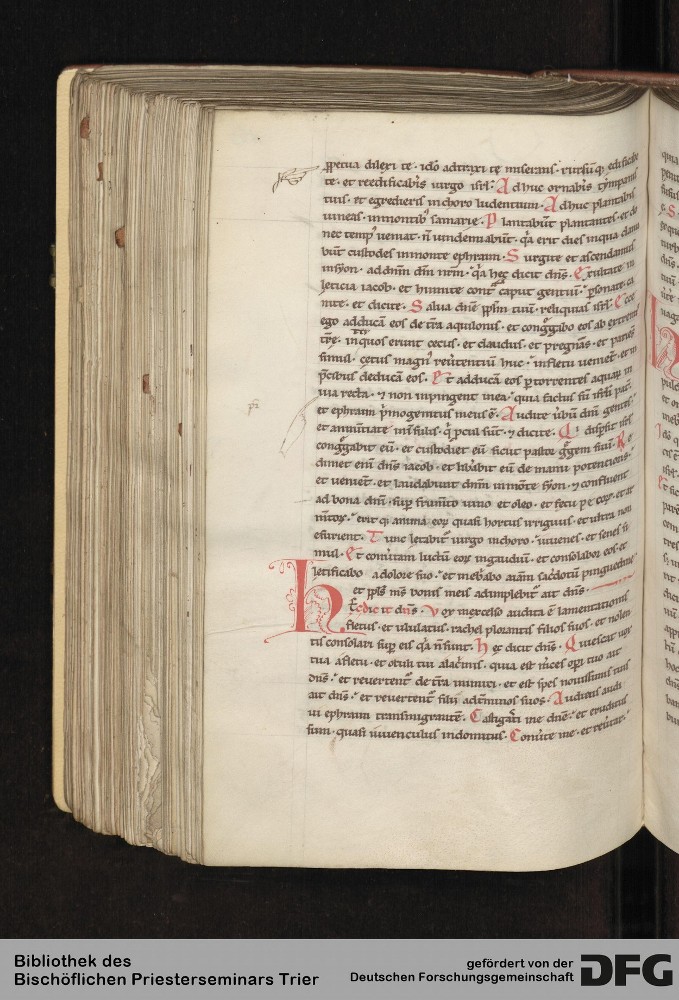 ppetua dilexi te · ido adtraxi te miserans · rursuq; edificabo
te · et reedificaberis uirgo isrl · Adhuc ornabis tympanis
tuis · et egredieris in choro ludentium · Adhuc plantabis
uineas · in montib; samarie · Plantabunt plantantes · et do
nec temp; ueniat · n uindemiabunt · qa erit dies in qua clama
bunt custodes in monte ephraim · Surgite et ascendamus
in syon · ad dnm dm nrm · qa hec dicit dns · Exultate in
leticia iacob · et hinnite cont caput gentiu · psonate · ca
nite · et dicite · Salua dne pplm tuu · reliquias isrl · Ecce
ego adduca eos de tra aquilonis · et congregabo eos ab extremis
tre · in quos erunt cecus · et claudus · et pregnas · et pariens
simul · cetus magn; reutentiu huc · in fletu uenient · et in
pcibus deduca eos · Et adduca eos p torrentes aquar in
uia recta · et non inpingent in ea · quia factus su isrl pat
et ephraim pmogenitus meus e · Audite ubu dni gentes
et annuntiate in insulis · q pcul sunt · et dicite · Qi dispsit isrl
congregabit eu · et custodiet eu sicut pastor gregem suu · Re
dimet eni dns iacob · et libabit eu de manu potencioris
et uenient · et laudabunt dnm in monte syon · et confluent
ad bona dni · sup frumto uino et oleo · et fetu pecor · et ar
mtor · erit q; anima eor quasi hortus irriguus · et ultra non
esurient · Tunc letabit uirgo in choro · iuuenes · et senes si
mul · Et conuertam luctu eor in gaudiu · et consolabor eos · et
letificabo a dolore suo · et inebriabo aiam sacdotu pinguedine
et ppls ms bonis meis adimplebit ait dns ·
Hec dicit dns · Vox in excelso audita e lamentationis
fletus · et ululatus · rachel plorantis filios suos · et nolen
tis consolari sup eis qa n sunt · Hec dicit dns · Quiescat uox
tua a fletu · et oculi tui a lacrimis · quia est mces opi tuo ait
dns · et reuertent de tra inimici · et est spes nouissimis tuis
ait dns · et reuertent filii ad tminos suos · Audiens audi
ui ephraim transmigrante · Castigasti me dne · et eruditus
sum · quasi iuuenculus indomitus · Conuerte me · et reutar
Bibliothek des
Bischöflichen Priesterseminars Trier
gefördert von der
Deutschen Forschungsgemeinschaft
DFG